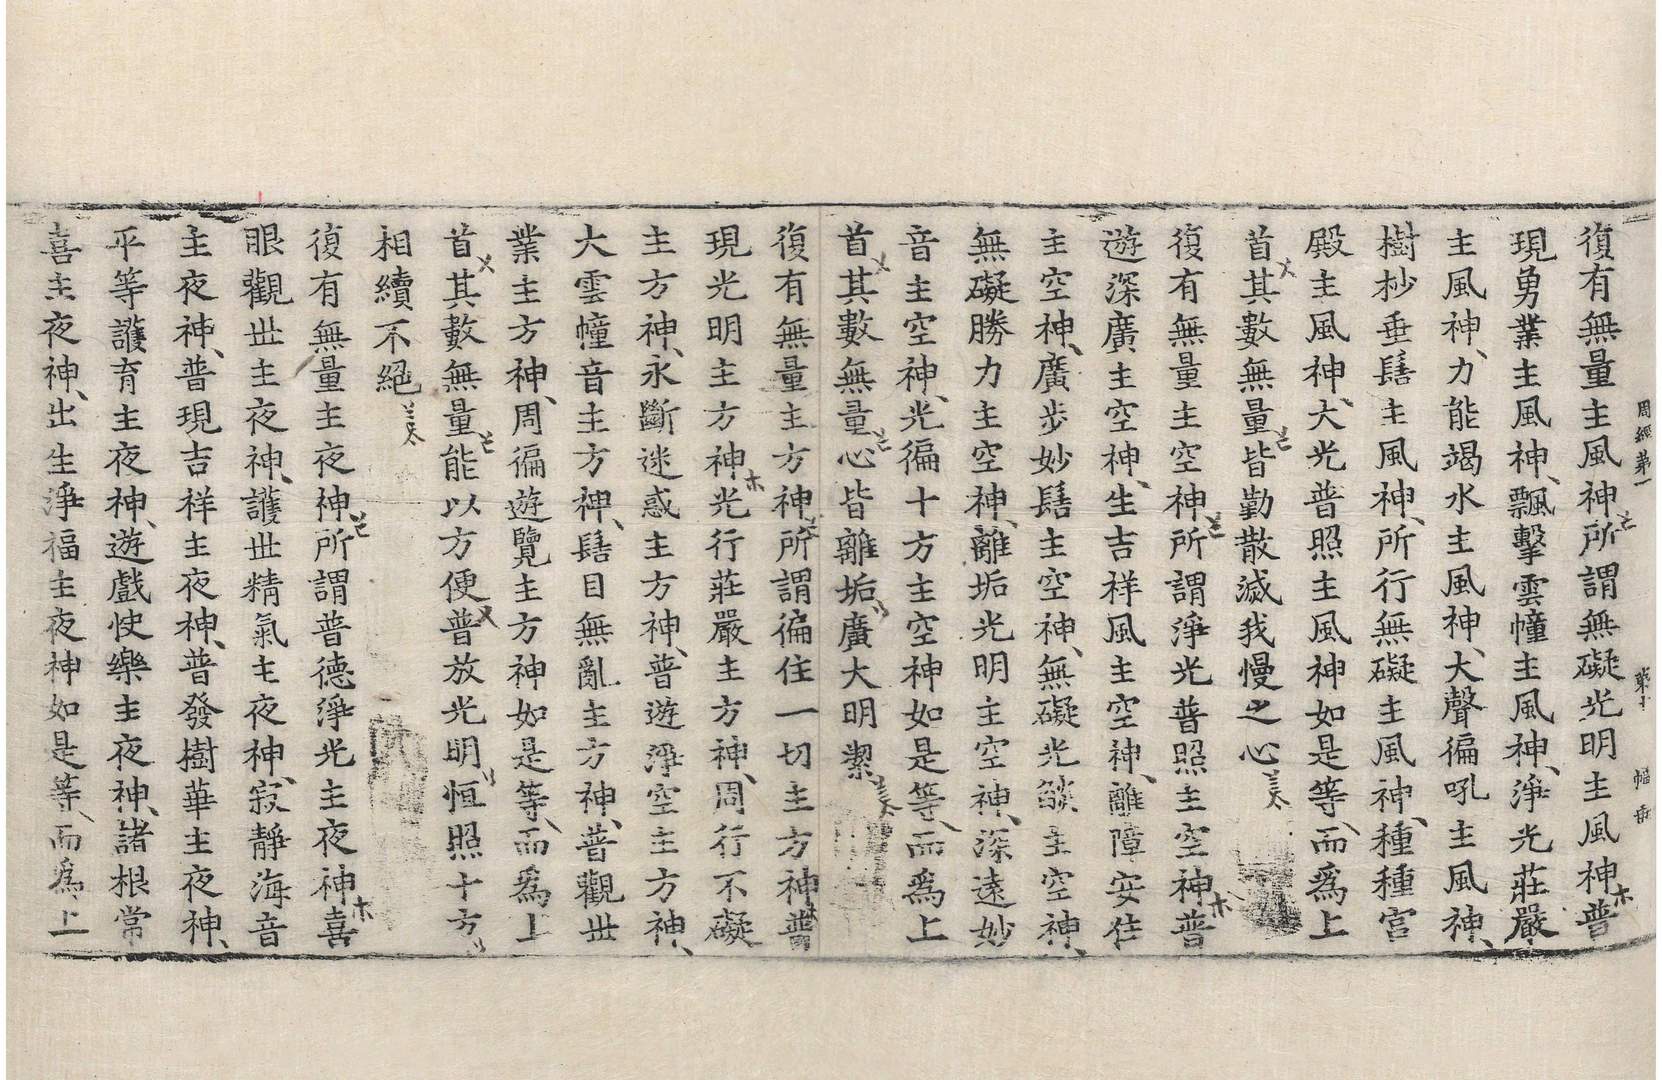 復有無量主風神所謂無礙光明主風神普
現勇業主風神飄擊雲幢主風神淨光莊嚴
主風神力能竭水主風神大聲徧吼主風神
樹杪垂髻主風神所行無礙主風神種種宮
殿主風神大光普照主風神如是等而爲上
首其數無量皆勤散滅我慢之心
復有無量主空神所謂淨光普照主空神普
遊深廣主空神生吉祥風主空神離障安住
主空神廣步妙髻主空神無礙光焰主空神
無礙勝力主空神離垢光明主空神深遠妙
音主空神光徧十方主空神如是等而爲上
首其數無量心皆離垢廣大明潔
復有無量主方神所謂徧住一切主方神普
現光明主方神光行莊嚴主方神周行不礙
主方神永斷迷惑主方神普遊淨空主方神
大雲幢音主方神髻目無亂主方神普觀世
業主方神周徧遊覽主方神如是等而爲上
首其數無量能以方便普放光明恒照十方
相續不絕
復有無量主夜神所謂普德淨光主夜神喜
眼觀世主夜神護世精氣主夜神寂靜海音
主夜神普現吉祥主夜神普發樹華主夜神
平等護育主夜神遊戲快樂主夜神諸根常
喜主夜神出生淨福主夜神如是等而爲上